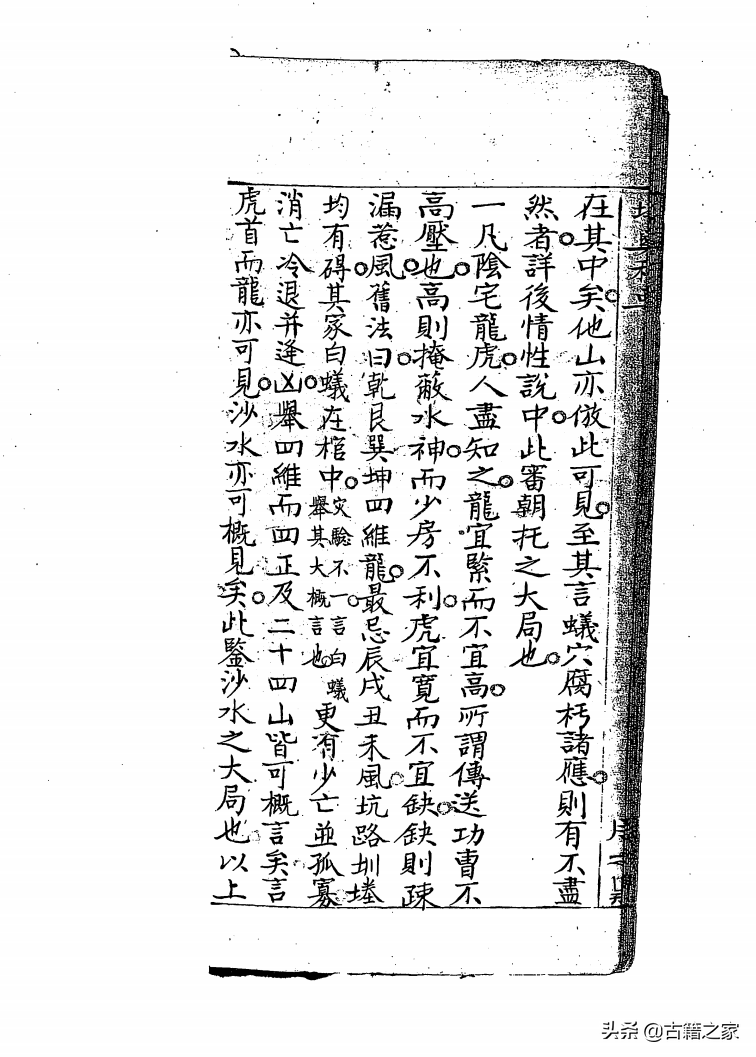 在其中矣他山亦倣此可見至其言蟻穴腐朽諸應則有不盡
然者詳後情性説中此審朝托之大局也
一凡陰宅龍虎人盡知之龍宜緊而不宜高所謂傳送功曹不
高壓也高則掩蔽水神而少房不利虎宜寛而不宜缺缺則疎
漏惹風舊法曰乾艮巽坤四維龍最忌辰戌丑未風坑路圳塳
均有碍其家白蟻在棺中災驗不一言白蟻舉其大概言也更有少亡並孤寡
消亡冷退并逢凶舉四維而四正及二十四山皆可概言矣言
虎首而龍亦可見沙水亦可概見矣此鑒沙水之大局也以上
头条 @古籍之家